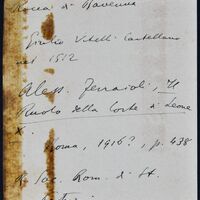 Rocca di Ravenna
Giulio Vitelli Castellano
nel 1512
Aless. Ferraioli, Il
Ruolo della Corte di Leone
X.
Roma, 1916?, p. 438
R. Soc. Rom. di St.